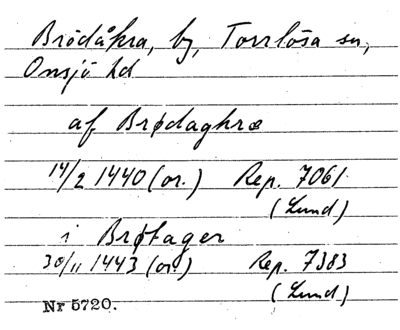 Brödåkra, by, Torrlösa sn,
Onsjö hd
af Brødaghræ
14/2 1440 (or.) Rep. 7061
(Lund)
i Brøtager
30/11 1443 (or.) Rep. 7383
(Lund)
Nr 5720.